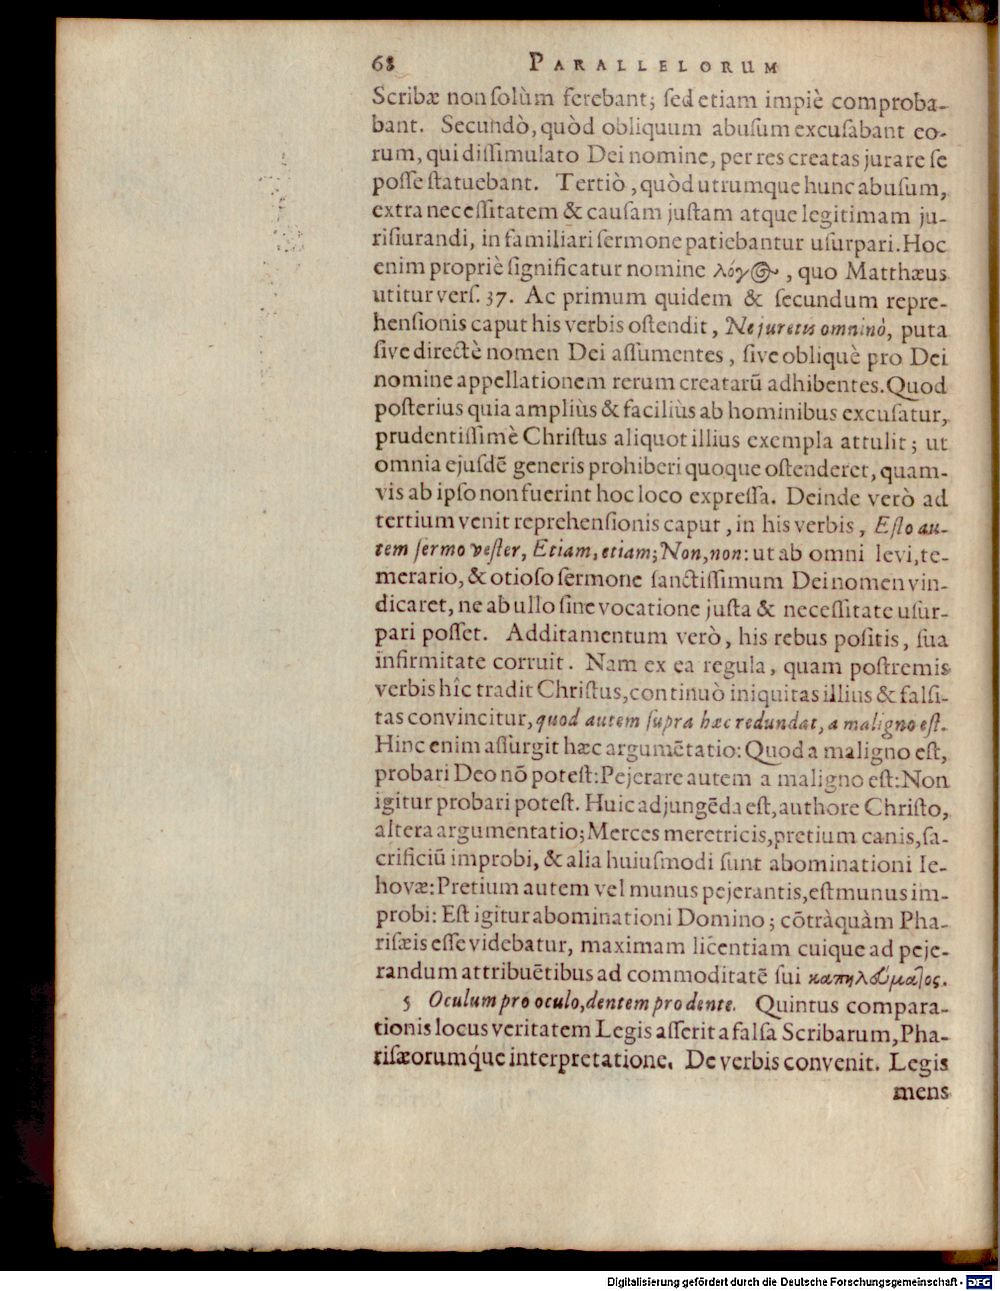 68 PARALLELORUM
Scribæ non solùm ferebant; sed etiam impiè comproba-
bant. Secundò, quòd obliquum abusum excusabant eo-
rum, qui dissimulato Dei nomine, per res creatas jurare se
posse statuebant. Tertiò, quòd utrumque hunc abusum,
extra necessitatem & causam justam atque legitimam ju-
risiurandi, in familiari sermone patiebantur usurpari. Hoc
enim propriè significatur nomine λόγος, quo Matthæus
utitur vers. 37. Ac primum quidem & secundum repre-
hensionis caput his verbis ostendit, Ne juretis omninò, puta
sive directè nomen Dei assumentes, sive obliquè pro Dei
nomine appellationem rerum creatarũ adhibentes. Quod
posterius quia ampliùs & faciliùs ab hominibus excusatur,
prudentissimè Christus aliquot illius exempla attulit; ut
omnia ejusdẽ generis prohiberi quoque ostenderet, quam-
vis ab ipso non fuerint hoc loco expressa. Deinde verò ad
tertium venit reprehensionis caput, in his verbis, Esto au-
tem sermo vester, Etiam, etiam; Non, non: ut ab omni levi, te-
merario, & otioso sermone sanctissimum Dei nomen vin-
dicaret, ne ab ullo sine vocatione justa & necessitate usur-
pari posset. Additamentum verò, his rebus positis, sua
infirmitate corruit. Nam ex ea regula, quam postremis
verbis hîc tradit Christus, continuò iniquitas illius & falsi-
tas convincitur, quod autem supra hæc redundat, a maligno est.
Hinc enim assurgit hæc argumẽtatio: Quod a maligno est,
probari Deo nõ potest: Pejerare autem a maligno est: Non
igitur probari potest. Huic adjungẽda est, authore Christo,
altera argumentatio; Merces meretricis, pretium canis, sa-
crificiũ improbi, & alia huiusmodi sunt abominationi Ie-
hovæ: Pretium autem vel munus pejerantis, est munus im-
probi: Est igitur abominationi Domino; cõtràquàm Pha-
risæis esse videbatur, maximam licentiam cuique ad peje-
randum attribuẽtibus ad commoditatẽ sui καπηλεύματος.
5 Oculum pro oculo, dentem pro dente. Quintus compara-
tionis locus veritatem Legis asserit a falsa Scribarum, Pha-
risæorumque interpretatione. De verbis convenit. Legis
mens
Digitalisierung gefördert durch die Deutsche Forschungsgemeinschaft - DFG